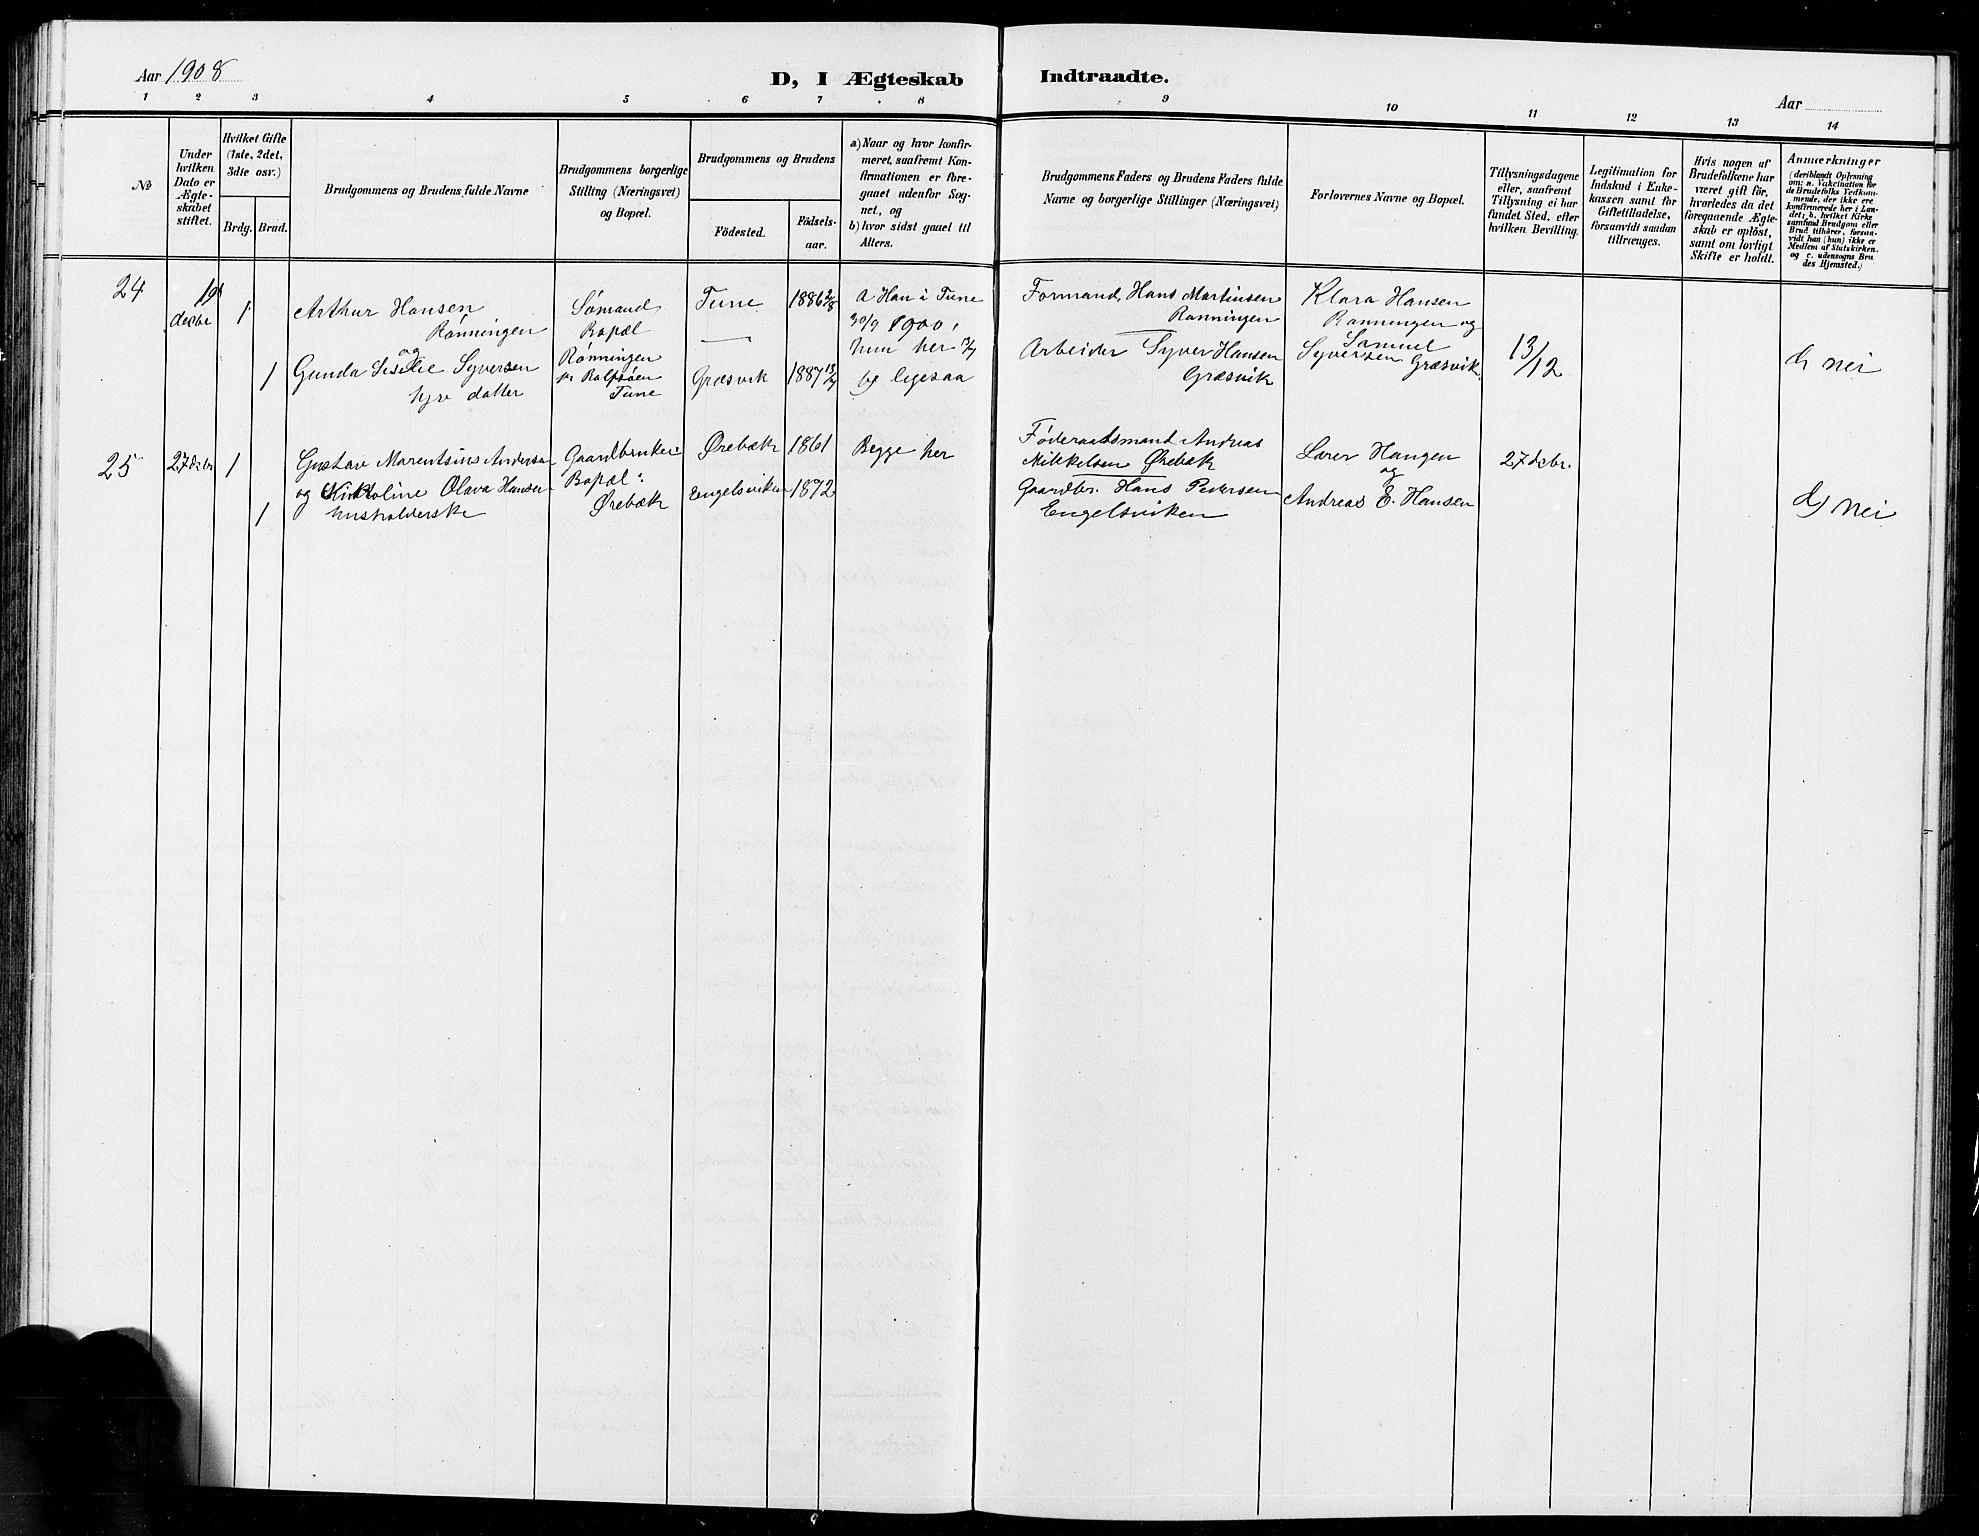 Aar 1908
D, I Ægteskab Indtraadte.
Aar
1 2 3 4 5 6 7 8 9 10 11 12 13 14
No
Under hvilken Dato er Ægte-skabet stiftet.
Hvilket Gifte (1ste, 2det, 3die osv.)
Brdg. Brud.
Brudgommens og Brudens fulde Navne
Brudgommens borgerlige Stilling (Næringsvei) og Bopæl.
Brudgommens og Brudens
Födested.
Födsels-aar.
a) Naar og hvor konfir-meret, saafremt Kon-firmationen er fore-gaaet udenfor Sog-net, og
b) hvor sidst gaaet til Alters.
Brudgommens Faders og Brudens Faders fulde Navne og borgerlige Stillinger (Næringsvei)
Forlovernes Navne og Bopæl.
Tillysningsdagene eller, saafremt Tillysning ei har fundet Sted, efter hvilken Bevilling.
Legitimation for Indskud i Enke-kassen samt for Giftetilladelse, forsaavidt saadan tiltrænges.
Hvis nogen af Brudefolkene har været gift för, hvorledes da det foregaaende Ægte-skab er oplöst, samt om lovligt Skifte er holdt.
Anmærkninger (deriblandt Oplysning om: a. Vakcination for de Brudefolks Vedkom-mende, der ikke ere konfirmerede her i Lan-det; b. hvilket Kirke samfund Brudgom eller Brud tilhörer, forsaa-vidt han (hun) ikke er Medlem af Statskirken. og c. udensogns Bru des Hjemsted.)
24
19 decbr
1
Arthur Hansen
Rønningen
og
1
Gunda Sisilie Syversen
hjv datter
Sømand
Bopæl
Rønningen
pr Rolfsøen
Tune
Tune
Græsvik
1886 2/8
1887 13/7
a Han i Tune
30/9 1900,
hun her
b/ ligesaa
Formand, Hans Martinsen
Rønningen
Arbeider Syver Hansen
Græsvik
Klara Hansen
Rønningen og
Samuel
Syversen Græsvik.
13/12
c/ nei
25
27 dcbr
1
1
Gustav Marentsius Anderse
og Olava Hansen
husholderske
Gaardbruker:
Bopæl:
Ørebæk
Ørebæk
Engelsviken
1861
1872
Begge her
Føderaadsmand Andreas
Mikkelsen Ørebæk
Gaardbr. Hans Pedersen
Engelsviken
Lærer Haugen
og
Andreas E. Hansen
27 dcbr.
c) nei